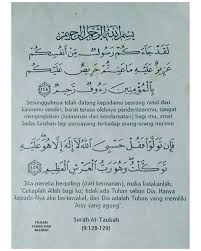 بِسْمِ اللَّهِ الرَّحْمَٰنِ الرَّحِيمِ
لَقَدْ جَاءَكُمْ رَسُولٌ مِنْ أَنْفُسِكُمْ
عَزِيزٌ عَلَيْهِ مَا عَنِتُّمْ حَرِيصٌ عَلَيْكُمْ
بِالْمُؤْمِنِينَ رَءُوفٌ رَحِيمٌ ﴿١٢٨﴾
Sesungguhnya telah datang kepadamu seorang rasul dari
kaummu sendiri, berat terasa olehnya penderitaanmu, sangat
menginginkan (keimanan dan keselamatan) bagi mu, amat
belas kasihan lagi penyayang terhadap orang-orang mu'min
فَإِنْ تَوَلَّوْا فَقُلْ حَسْبِيَ اللَّهُ لَا إِلَٰهَ إِلَّا هُوَ عَلَيْهِ
تَوَكَّلْتُ وَهُوَ رَبُّ الْعَرْشِ الْعَظِيمِ ﴿١٢٩﴾
Jika mereka berpaling (dari keimanan), maka katakanlah,
"Cukuplah Allah bagi ku; tidak ada Tuhan selain Dia. Hanya
kepada-Nya aku bertawakkal, dan Dia adalah Tuhan yang memiliki
'Arsy yang agung".
Surah At-Taubah
(9:128-129)